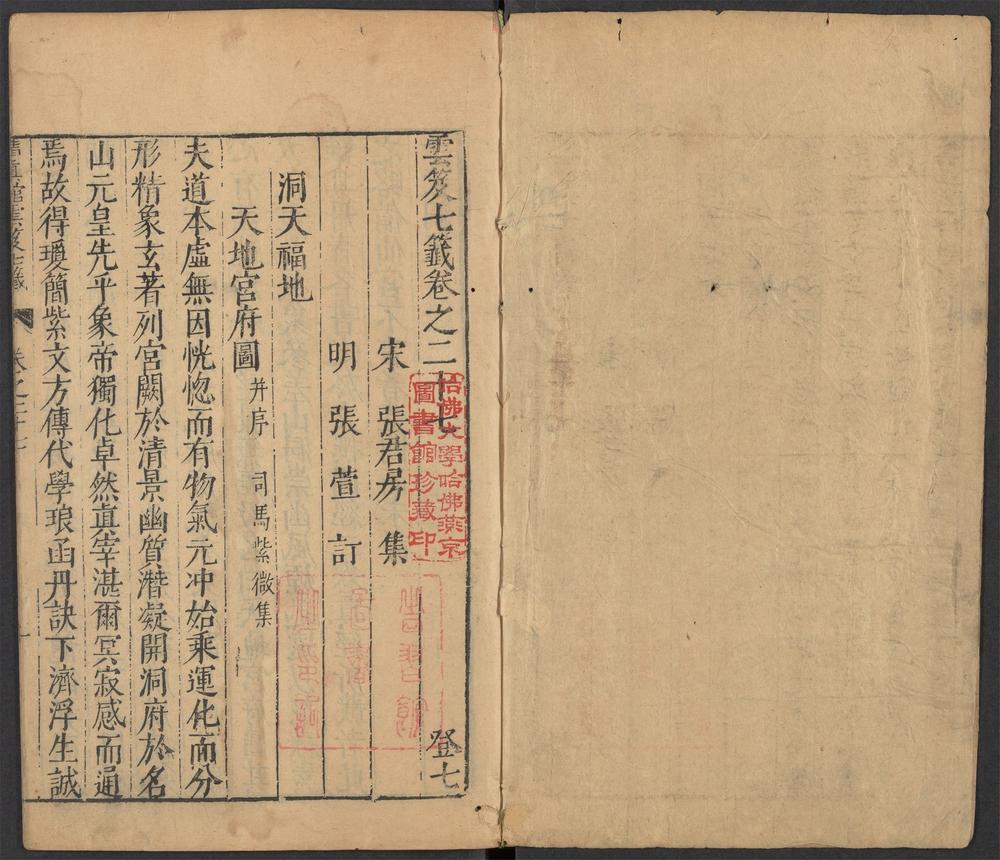 雲笈七籤卷之二十七 登七
宋 張君房 集
明 張萱 訂
洞天福地
天地宮府圖 并序 司馬紫微集
夫道本虛無因恍惚而有物氣元冲始乘運化而分
形精象玄著列宮闕於清景幽質潛凝開洞府於名
山元皇先乎象帝獨化卓然眞宰湛爾冥寂感而通
焉故得瓊簡紫文方傳代學琅函丹訣下濟浮生誠
卷之二十七
哈佛大學哈佛燕京
圖書館珍藏印